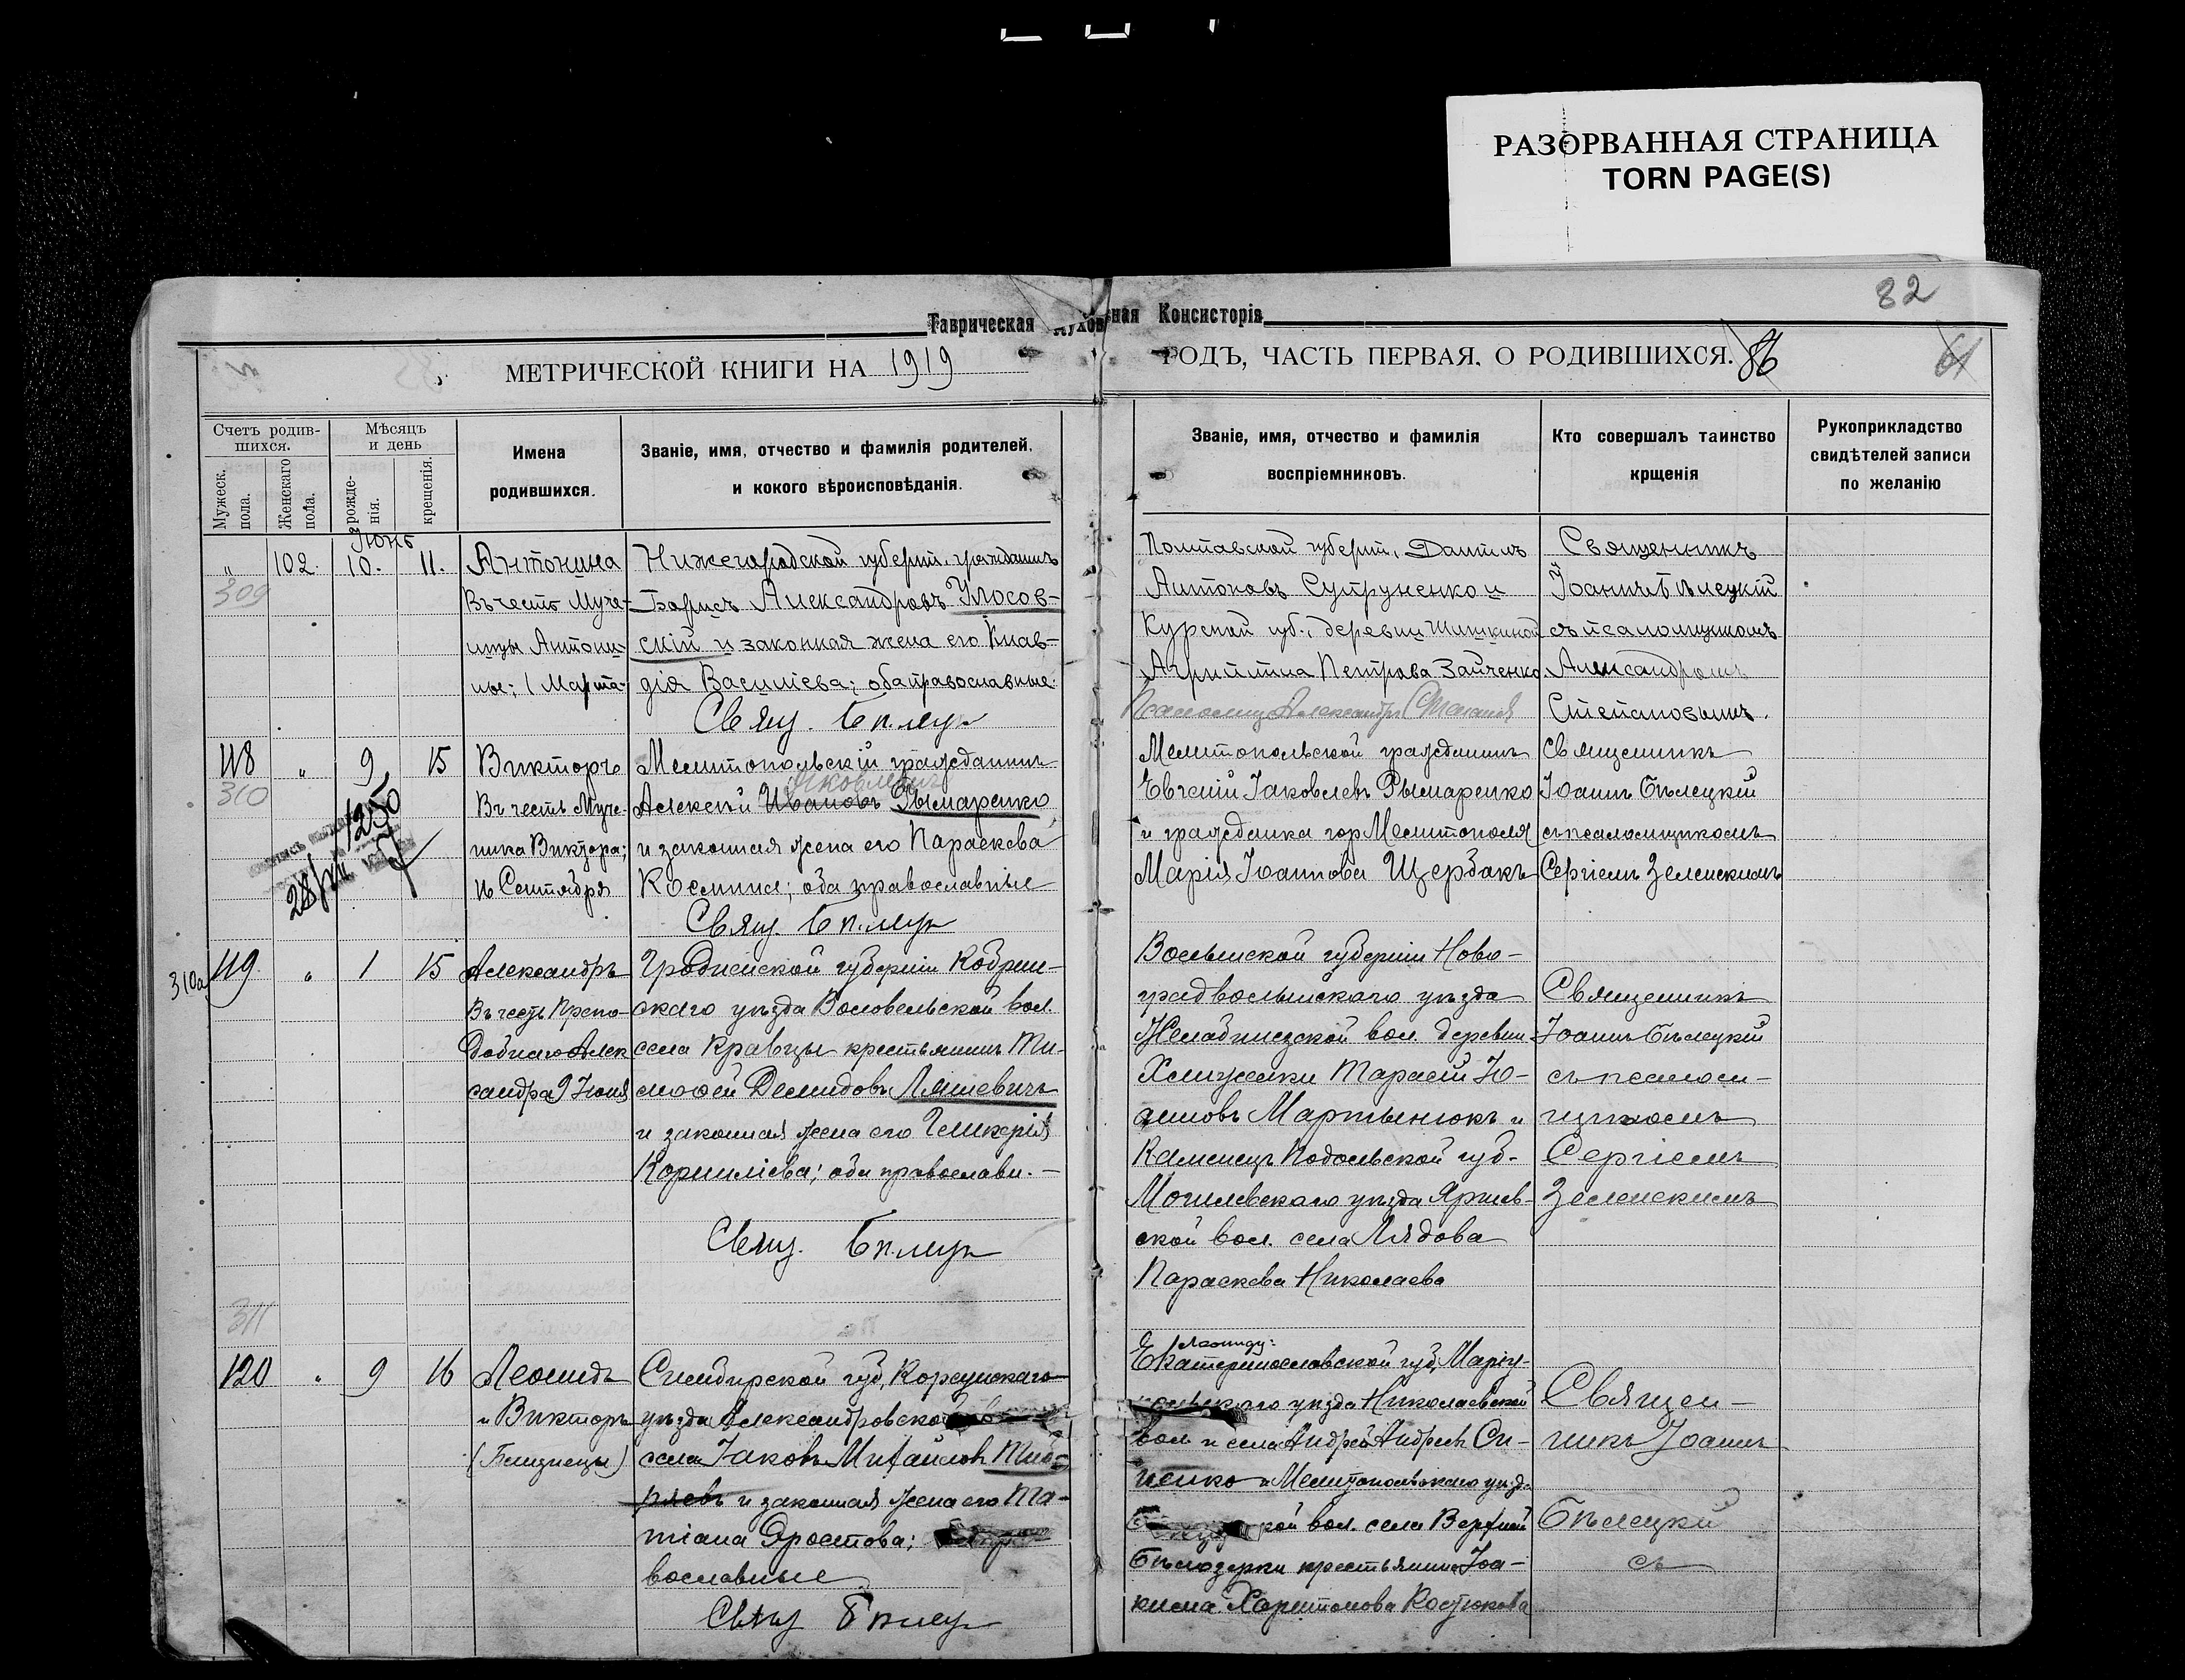 РАЗОРВАННАЯ СТРАНИЦА
TORN PAGE(S)
82
Таврическая Духов
ная Консисторія
МЕТРИЧЕСКОЙ КНИГИ НА 1919
ГОДЪ, ЧАСТЬ ПЕРВАЯ, О РОДИВШИХСЯ. 86
61
Счетъ родив-
шихся.
Мужеск.
пола.
Женскаго
пола.
Мѣсяцъ
и день
рожде-
нія.
крещенія.
Имена
родившихся.
Званіе, имя, отчество и фамилія родителей,
и кокого вѣроисповѣданія.
Званіе, имя, отчество и фамилія
воспріемниковъ.
Кто совершалъ таинство
крщенія
Рукоприкладство
свидѣтелей записи
по желанію
Іюнь
" 102. 10. 11.
309
Антонина
Въ честь Муче-
ницы Антони-
ны; 1 Марта
Нижегородской губерніи, гражданинъ
Борисъ Александровъ Улосов-
скій и законная жена его Клав-
дія Василіева; оба православные.
Свящ. Бѣлецк
Полтавской губерніи, Даніилъ
Антоновъ Супруненко и
Курской губ., деревни Шишкиной
Агриппина Петрова Зайченко
Псаломщ Александръ
Священникъ
Іоаннъ Бѣлецкій
съ псаломщикомъ
Александромъ
Степановымъ.
118 " 9 15
310
1250
28/VII
Викторъ
Въ честь Муче-
ника Виктора;
16 Сентября
Мелитопольскій гражданинъ
Яковлевъ
Алексѣй Ивановъ Рымаренко
и законная жена его Параскева
Космина; оба православные
Свящ. Бѣлецк
Мелитопольской гражданинъ
Евгеній Іаковлевъ Рымаренко
и гражданка гор Мелитополя
Марія Іоаннова Щербакъ
Священникъ
Іоаннъ Бѣлецкій
съ псаломщикомъ
Сергіемъ Зеленскимъ
310а 119 " 1 15
Александръ
Въ честь Препо-
добнаго Алек
сандра 9 Іюня
Гродненской губерніи Кобрин-
скаго уѣзда Воловельской вол.
села Кравцы крестьянинъ Ти-
моѳей Демидовъ Ляшевичъ
и законная жена его Гликерія
Корниліева; оба православн. -
Свящ. Бѣлецк
Волынской губерніи Ново-
градволынскаго уѣзда
вол. деревни
Тарасій Іо-
анновъ Мартынюкъ и
Каменецъ Подольской губ.
Могилевскаго уѣзда Яришев-
ской вол. села Лядова
Параскева Николаева
Священникъ
Іоаннъ Бѣлецкій
съ псалом-
щикомъ
Сергіемъ
Зеленскимъ
311
120 " 9 16
Леонидъ
и Викторъ
(Близнецы)
Симбирской губ, Корсунскаго
уѣзда Александровской
села Іаковъ Михайловъ
и законная жена его Та-
тіана Эрастова;
вославные
Свящ Бѣлецк
Леониду:
Екатеринославской губ, Маріу-
польскаго уѣзда Николаевской
вол и села Андрей Андреевъ Си-
ненко и Мелитопольскаго уѣзд.
кой вол. села Верхней
Бѣлозерки крестьянина Іоа-
кима Харитонова Костюкова
Священ-
никъ Іоаннъ
Бѣлецкій
съ